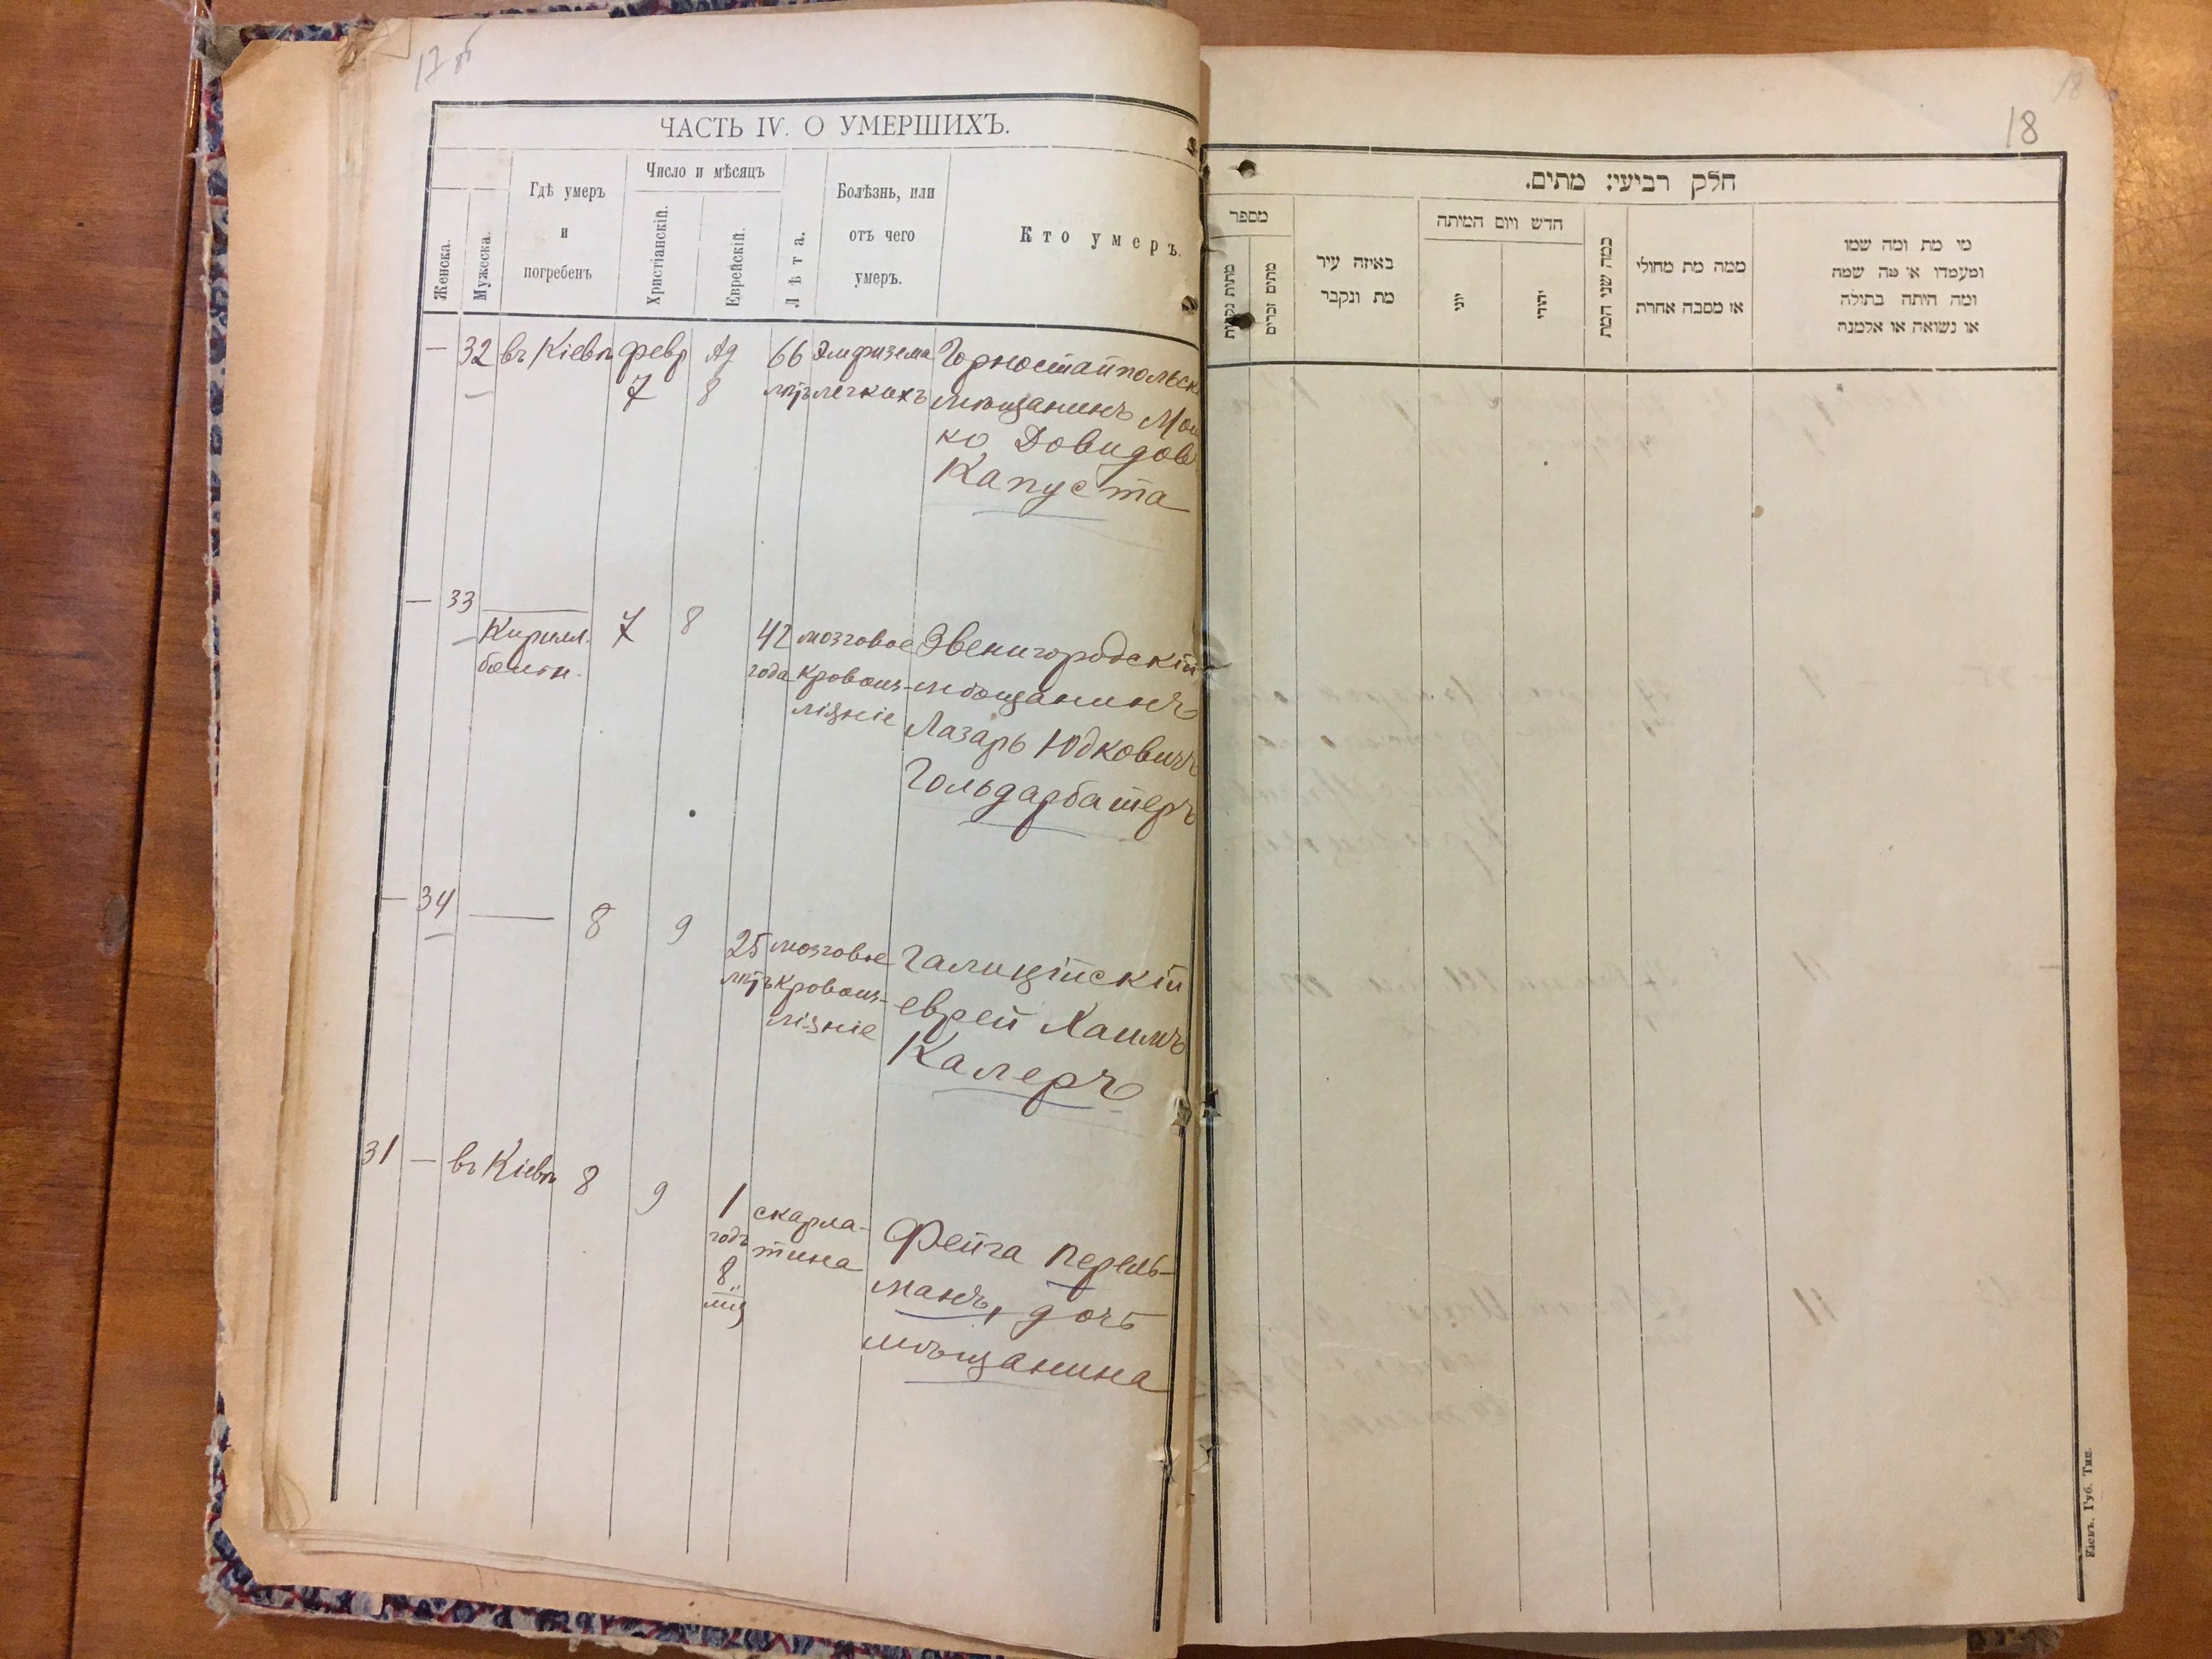 17 об
ЧАСТЬ IV. О УМЕРШИХЪ.
Женска.
Мужеска.
Гдѣ умеръ
и
погребенъ
Число и мѣсяцъ
Христіанскій.
Еврейскій.
Лѣта.
Болѣзнь, или
отъ чего
умеръ.
Кто умеръ.
— 32 въ Кіевѣ февр Ад 66 Эмфизема Горностайпольск
7 8 лѣтъ легкихъ мѣщанинъ Мош
ко Довидов
Капуста
— 33 — 7 8 42 мозговое Звенигородскій
Кирилл. года кровоиз- мѣщанинъ
больн. ліяніе Лазарь Юдковичъ
Гольдарбатеръ
— 34 — 8 9 25 мозговое Галиційскій
лѣтъ кровоиз- еврей Хаимъ
ліяніе Калеръ
31 — въ Кіевѣ 8 9 1 скарла- Фейга Перель-
годъ тина манъ, дочь
8 мѣщанина
мц
18
18
חלק רביעי: מתים.
מספר
מתות נקבות
מתים זכרים
באיזה עיר
מת ונקבר
חדש ויום המיתה
יוני
יהודי
כמה שני המת
ממה מת מחולי
או מסבה אחרת
מי מת ומה שמו
ומעמדו או מה שמה
ומה היתה בתולה
או נשואה או אלמנה
Кіевъ. Губ. Тип.